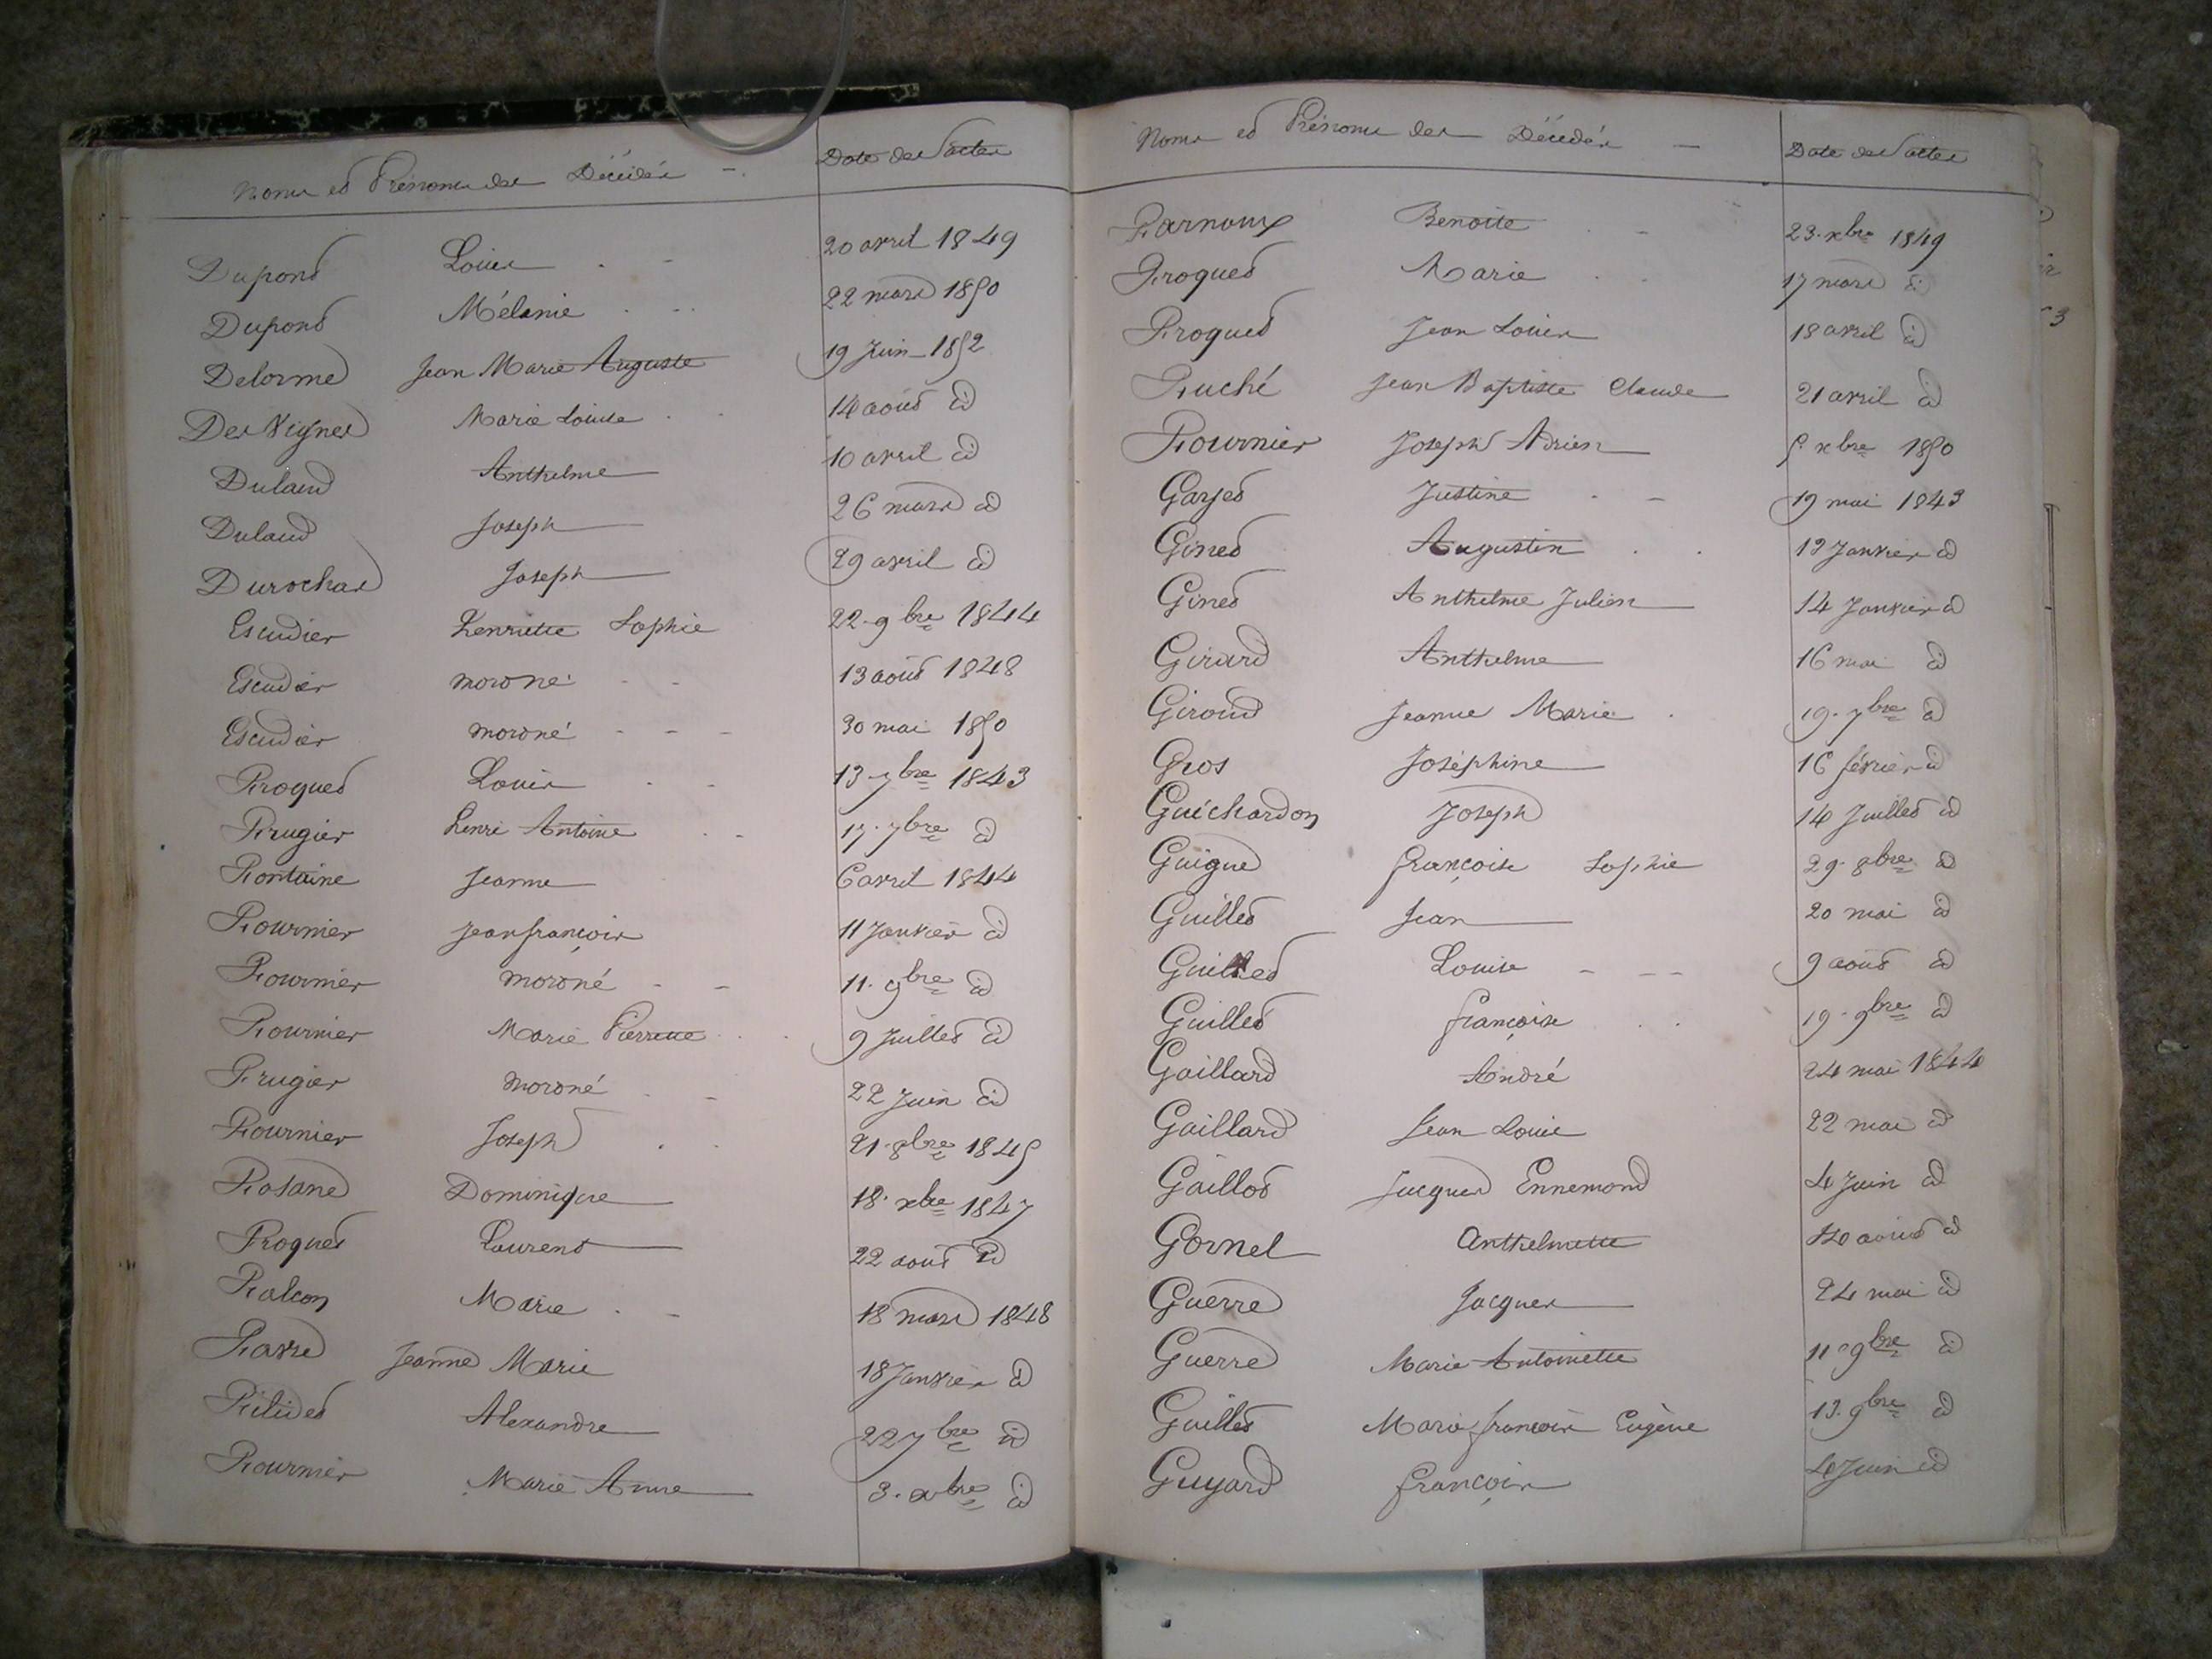 Noms et Prénoms des Décédés - Date des actes
Dupont Louis 20 avril 1849
Dupont Mélanie 22 mars 1850
Delorme Jean Marie Auguste 19 Juin 1852
Des Vignes Marie Louise 14 août id
Dulaud Anthelme 10 avril id
Dulaud Joseph 26 mars id
Durochat Joseph 29 avril id
Escudier Henriette Sophie 22 9bre 1844
Escudier mor né 13 août 1848
Escudier mor né 30 mai 1850
Froquet Louis 13 7bre 1843
Frugier Henri Antoine 17 7bre id
Fontaine Jeanne 6 avril 1844
Fournier Jean françois 11 Janvier id
Fournier mor né 11 9bre id
Fournier Marie Pierrette 9 Juillet id
Frugier mor né 22 Juin id
Fournier Joseph 21 8bre 1845
Fosane Dominique 18 xbre 1847
Froquet Laurent 22 août id
Falcon Marie 18 mars 1848
Favre Jeanne Marie 18 Janvier id
Alexandre 22 7bre id
Fournier Marie Anne 3 xbre id
Noms et Prénoms des Décédés - Date des actes
Farnoux Benoite 23 xbre 1849
Froquet Marie 17 mars id
Froquet Jean Louis 18 avril id
Fuché Jean Baptiste Claude 21 avril id
Fournier Joseph Adrien 5 xbre 1850
Garjet Justine 19 mai 1843
Ginet Augustin 12 Janvier id
Ginet Anthelme Julien 14 Janvier id
Girard Anthelme 16 mai id
Giroud Jeanne Marie 19 7bre id
Gros Joséphine 16 février id
Guichardon Joseph 14 Juillet id
Guigue françoise Sophie 29 8bre id
Guillet Jean 20 mai id
Guillet Louise 9 août id
Guillet françoise 19 9bre id
Gaillard André 24 mai 1844
Gaillard Jean Louis 22 mai id
Gaillot Jacques Ennemond 4 Juin id
Gornel Anthelmette août id
Guerre Jacques 24 mai id
Guerre Marie Antoinette 11 9bre id
Guillet Marie françois Eugène 13 9bre id
Guyard françois Juin id